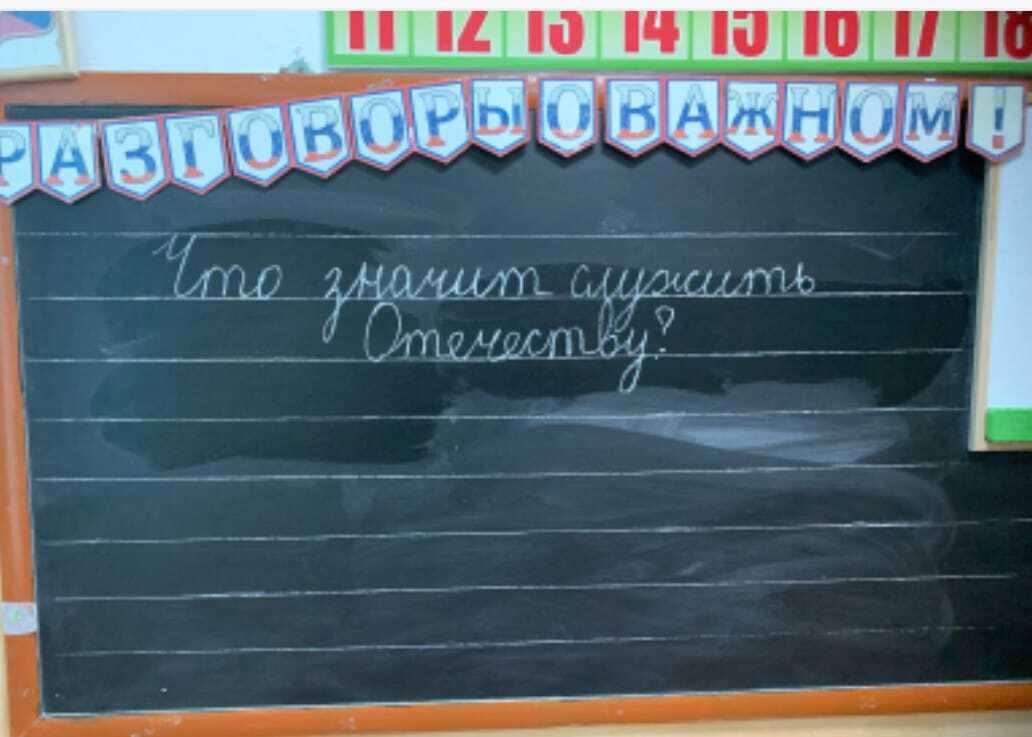 11 12 13 14 15 16 17 18
РАЗГОВОРЫ О ВАЖНОМ!
Что значит служить
Отечеству?